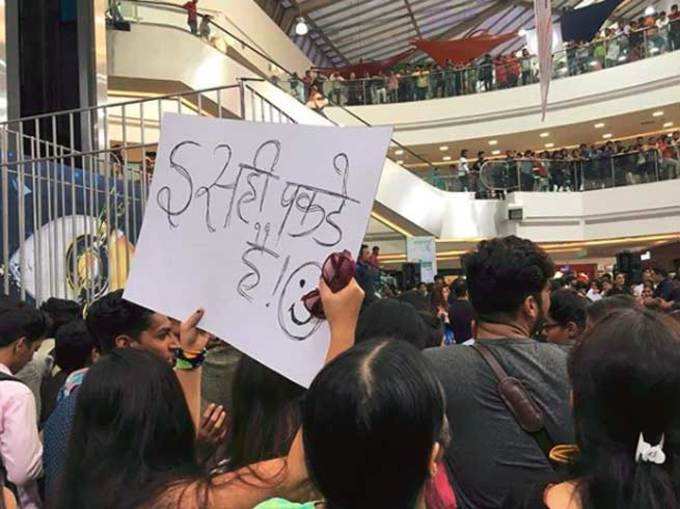 सही पकडे
हैं!